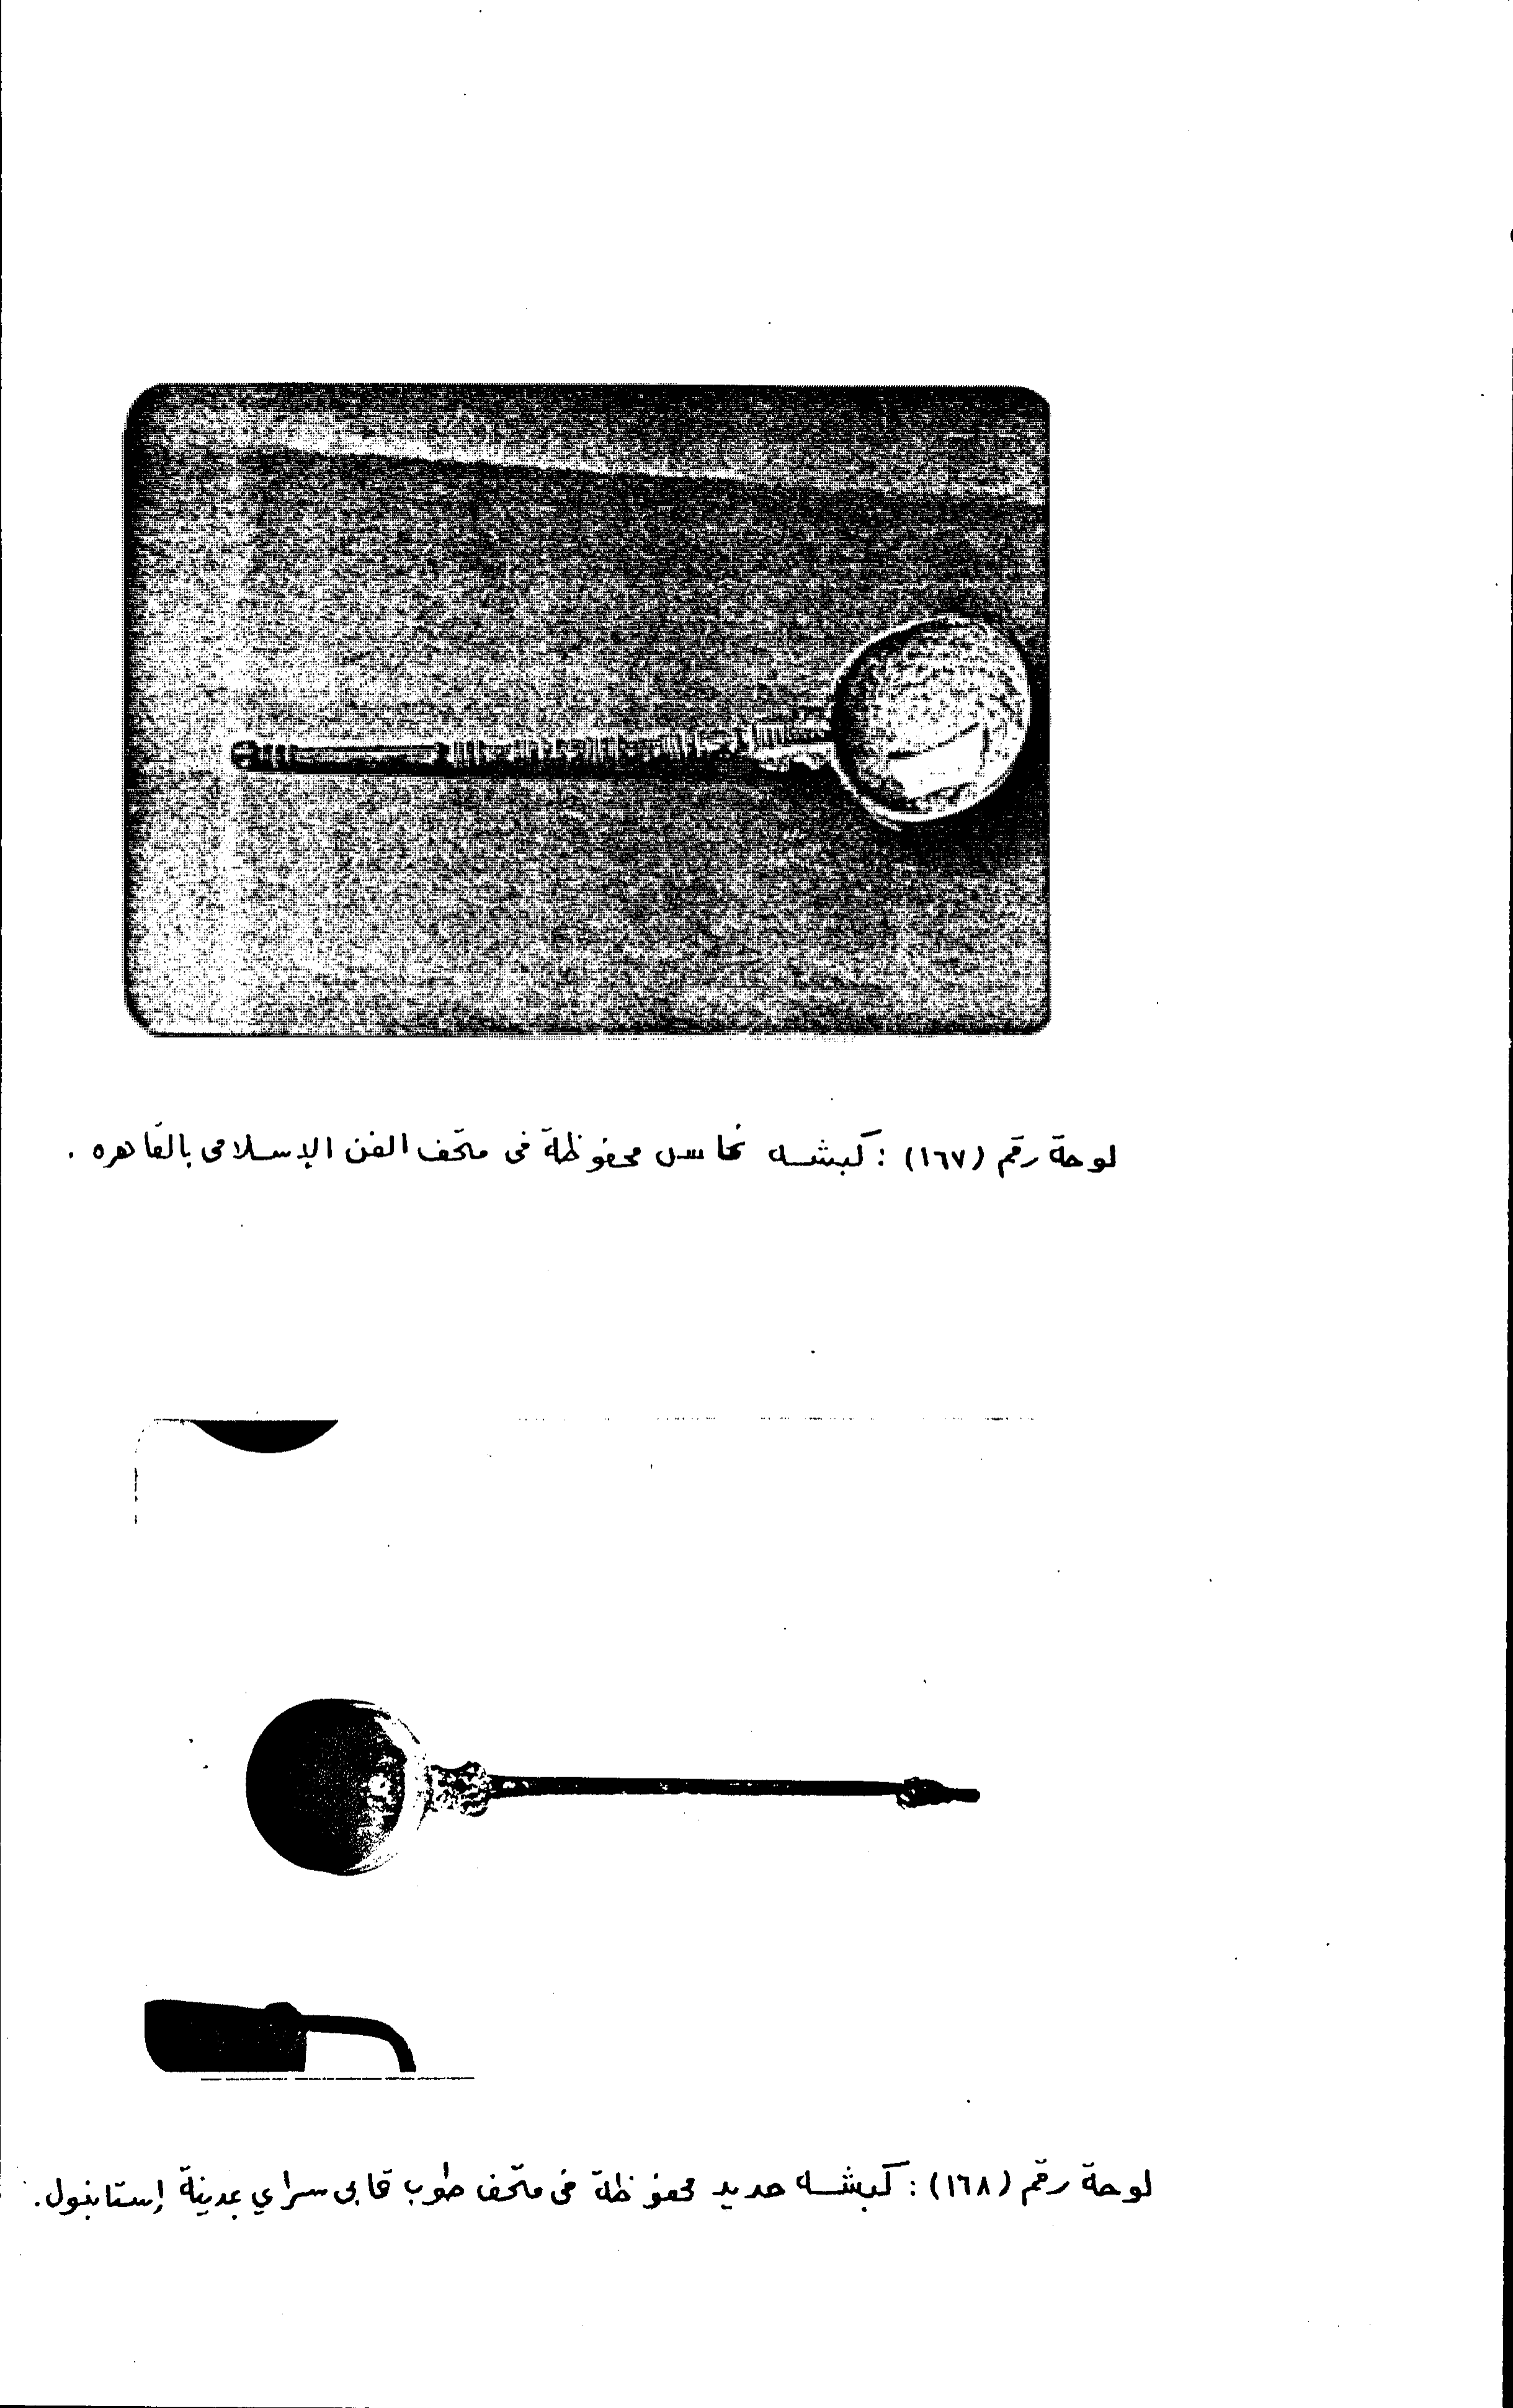 لوحة رقم (١٦٧) : كبشه نحاس محفوظة فى متحف الفن الإسلامى بالقاهره .
لوحة رقم (١٦٨) : كبشه حديد محفوظة فى متحف طوب قابى سراي بمدينة إستانبول.